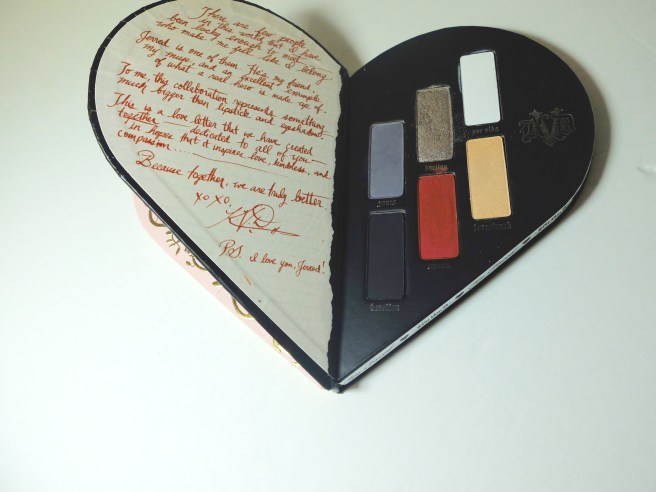 There are few people
in this world that I have
been lucky enough to meet
who make me feel like I belong.
Jerrod is one of them. He's my friend,
my muse, and an excellent example
of what a real hero is made up of.
To me, this collaboration represents something
much bigger than lipstick and eyeshadow.
This is a love letter that we have created
together — dedicated to all of you —
in hopes that it inspires love, kindness, and
compassion...
Because together, we are truly better.
XOXO,
KVD
P.S. I love you, Jerrod!
KVD